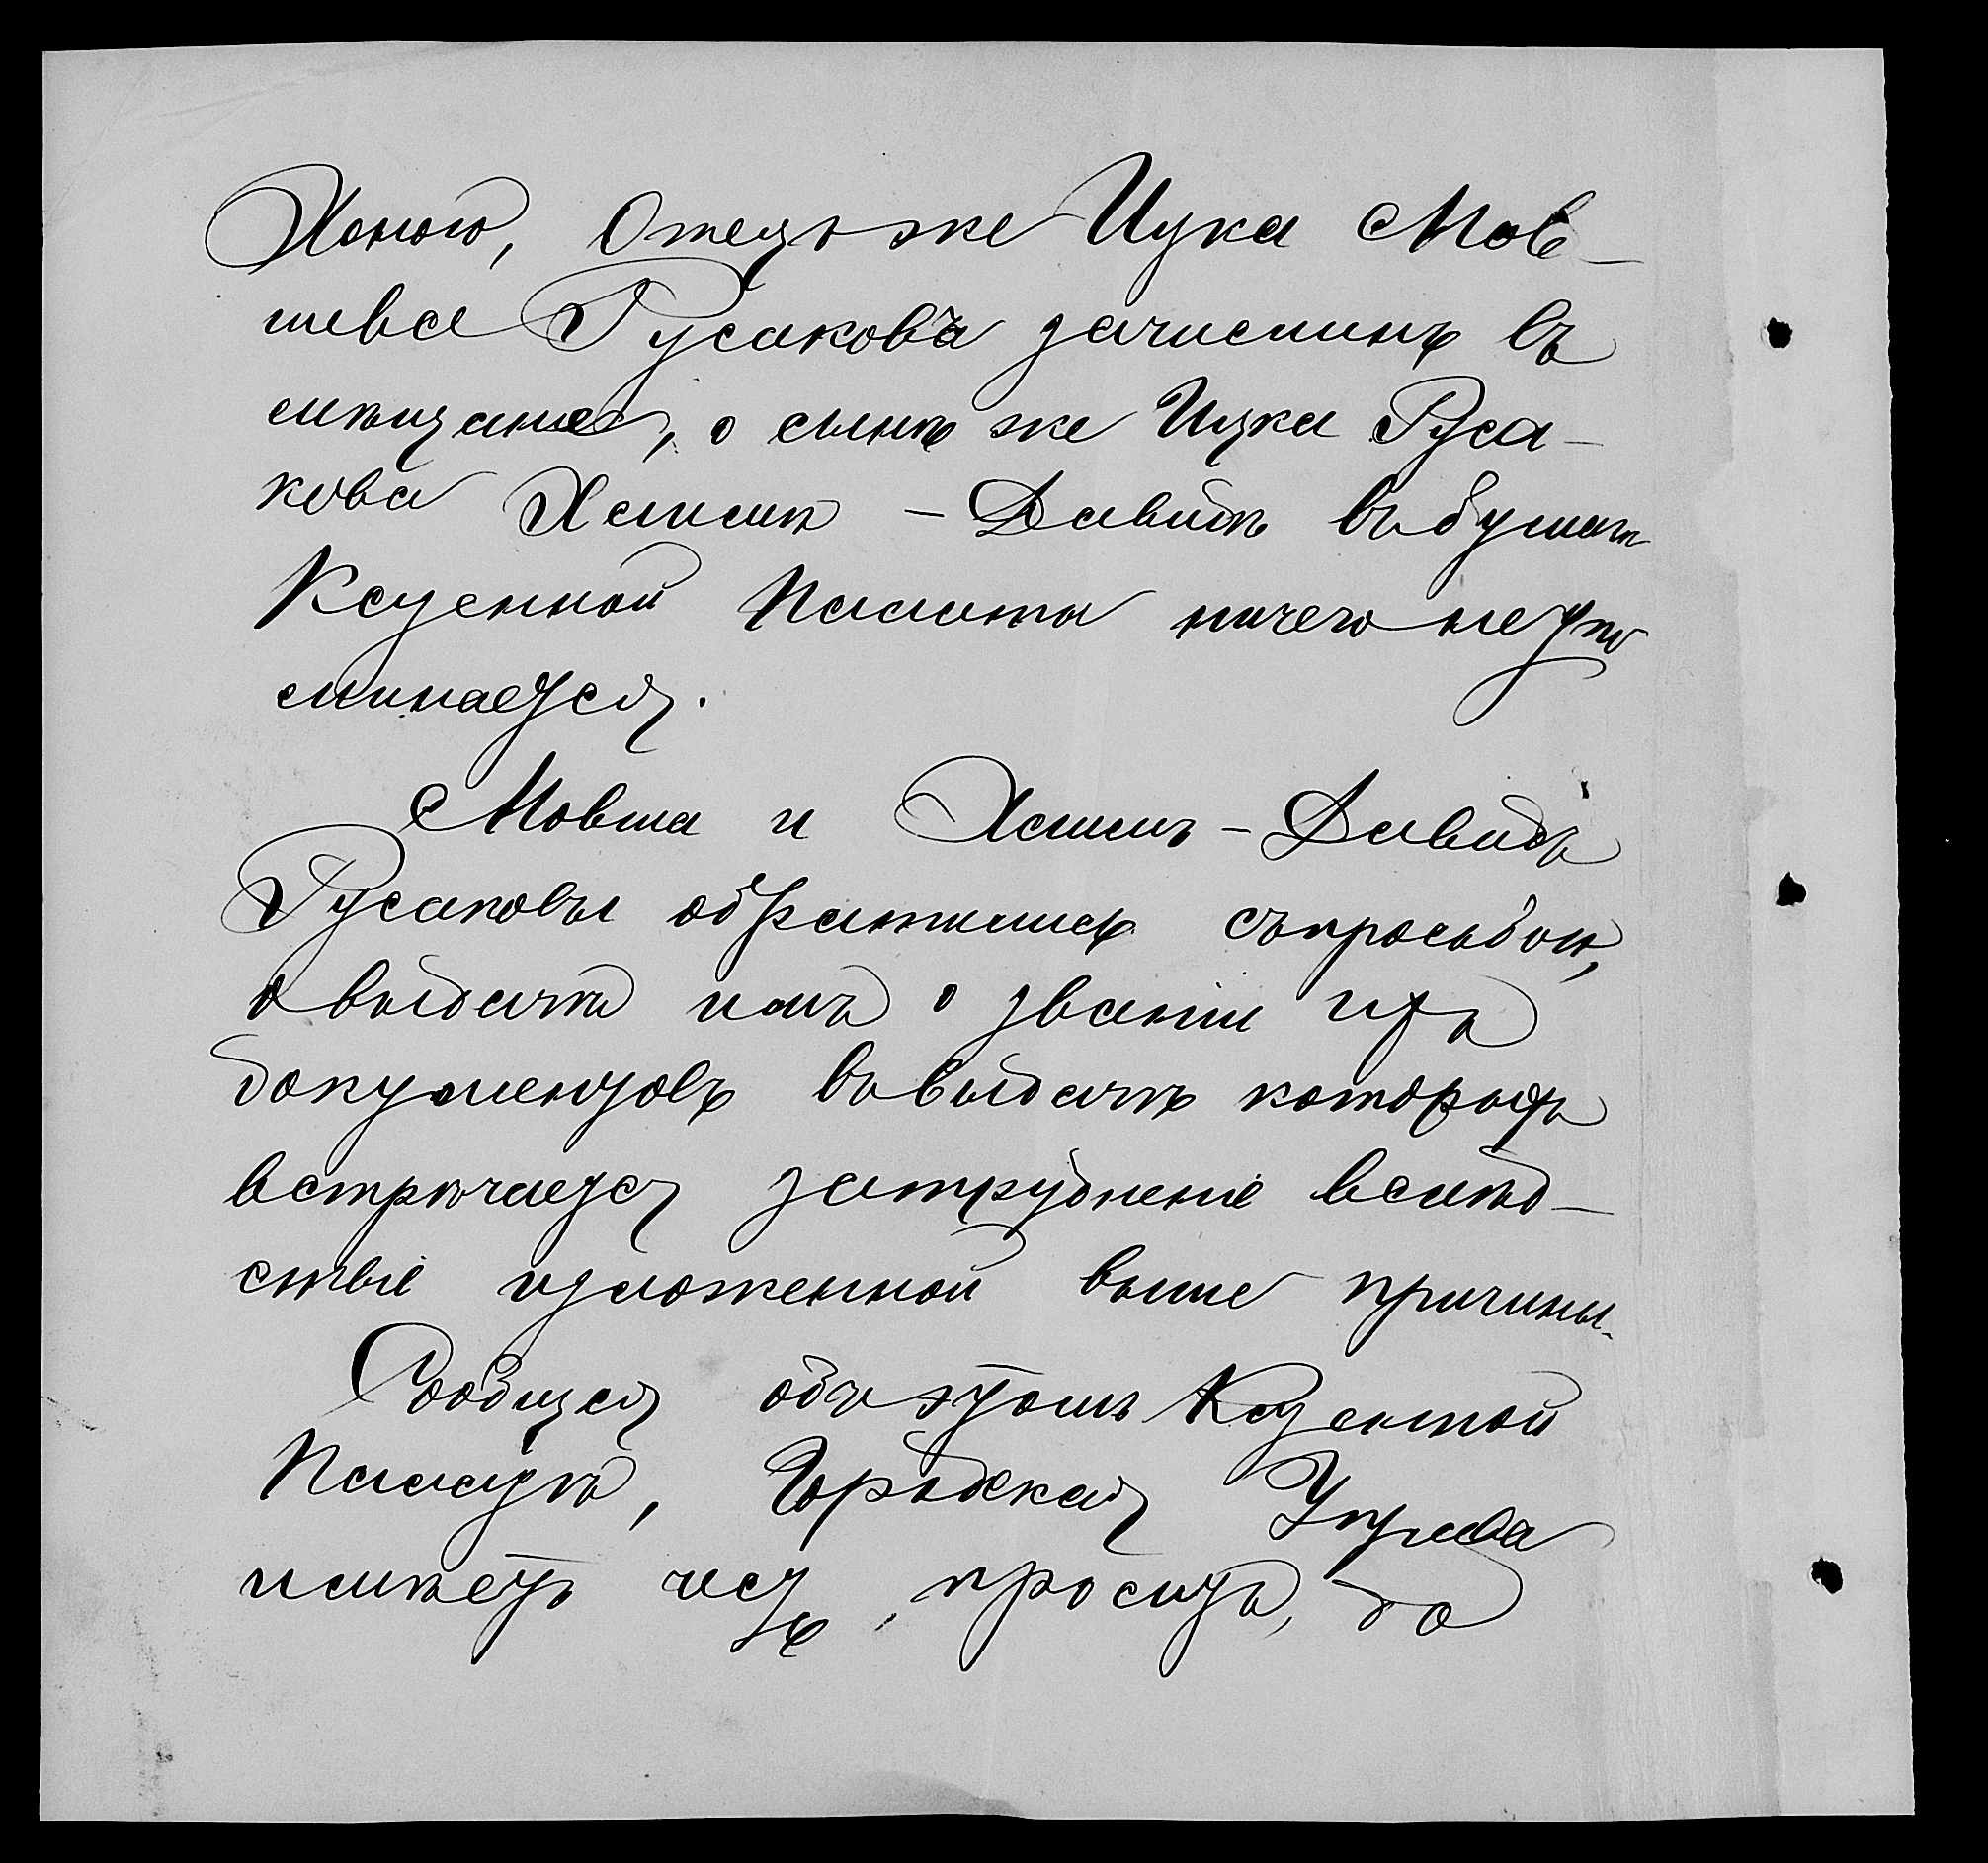 Хоною, Отецъ же Ицка Мов-
шева Русаковъ зачисленъ въ
мѣщане, о сынѣ же Ицка Руса-
кова Хаимѣ - Давидѣ въ бумагѣ
Казенной Палаты ничего не упо
минается.
Мовша и Хаимъ - Давидъ
Русаковы обратились съ просьбою,
о выдачѣ имъ о званіи ихъ
документовъ въ выдачѣ которыхъ
встрѣчается затрудненіе вслѣд-
ствіе изложенной выше причины.
Сообщая объ этомъ Казенной
Палатѣ, Городская Управа
имѣетъ честь просить, до